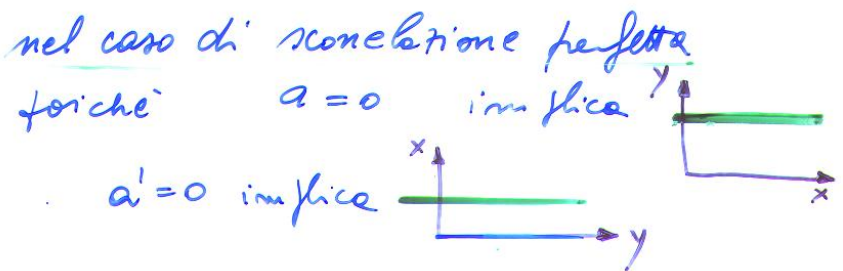 nel caso di scorrelazione perfetta
poichè a = 0 implica
y
x
a' = 0 implica
x
y